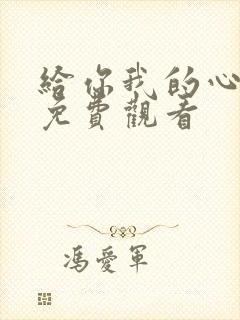 給你我的心
免費觀看
馮愛軍